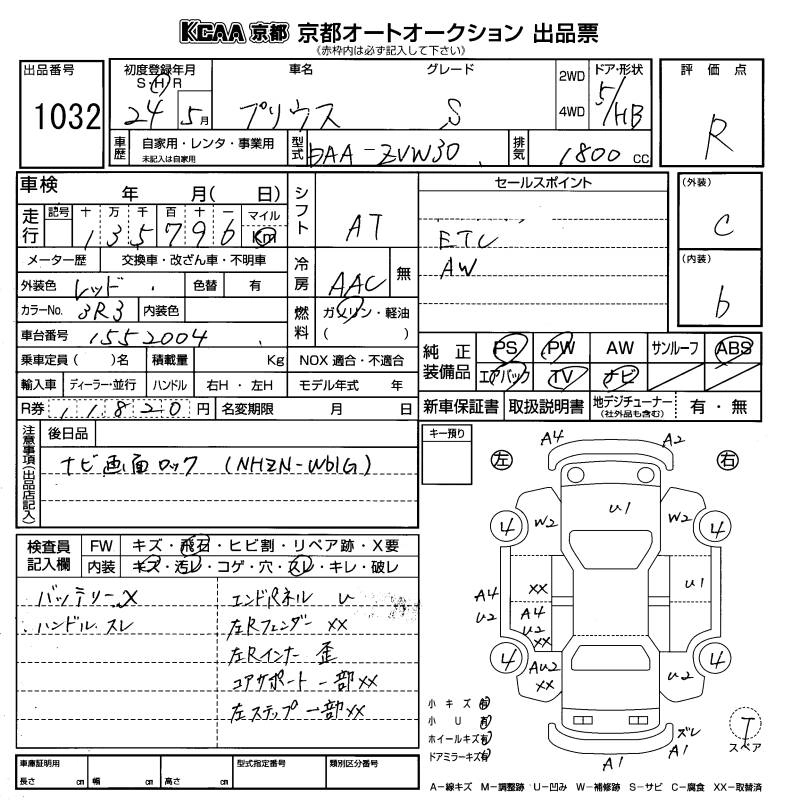 KCAA 京都 京都オートオークション 出品票
(赤枠内は必ず記入して下さい)
出品番号
1032
初度登録年月
S H R
24 5月
車名
プリウス
グレード
S
2WD
4WD
ドア・形状
5/HB
評価点
R
車歴
自家用・レンタ・事業用
未記入は自家用
型式
DAA-ZVW30
排気
1800 cc
車検
年 月( 日)
走行
記号 十 万 千 百 十 一 マイル
1 3 5 7 9 6 Km
メーター歴 交換車・改ざん車・不明車
外装色 レッド 色替 有
カラーNo. 3R3 内装色
車台番号 1552004
乗車定員( )名 積載量 Kg
輸入車 ディーラー・並行 ハンドル 右H・左H
R券 11820円 名変期限 月 日
シフト
AT
冷房
AAC 無
燃料
ガソリン・軽油
( )
NOX 適合・不適合
モデル年式 年
セールスポイント
ETC
AW
(外装)
C
(内装)
b
純正装備品
PS PW AW サンルーフ ABS
エアバック TV ナビ
新車保証書 取扱説明書 地デジチューナー
(社外品も含む)
有・無
注意事項(出品店記入)
後日品
ナビ画面ロック (NHZN-W61G)
キー預り
検査員記入欄
FW キズ・飛石・ヒビ割・リペア跡・X要
内装 キズ・汚レ・コゲ・穴・スレ・キレ・破レ
バッテリーX
ハンドル スレ
エンドパネル U
左Rフェンダー XX
左Rインナー 歪
コアサポート一部XX
左ステップ一部XX
左
右
A4
A2
U1
W2
W2
4
4
XX
U1
A4
U2
A4
U2
XX
4
4
AU2
XX
U2
A1
ズレ
A1
T
スペア
小キズ 有
小U 有
ホイールキズ 有
ドアミラーキズ 有
車庫証明用
長さ cm 幅 cm 高さ cm
型式指定番号
類別区分番号
A-線キズ M-調整跡 U-凹み W-補修跡 S-サビ C-腐食 XX-取替済